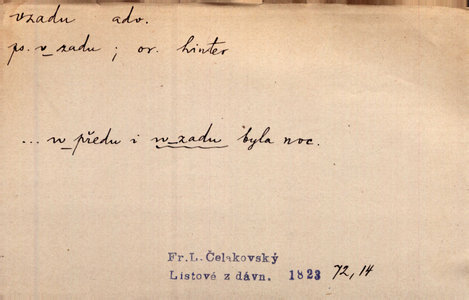 vzadu adv.
ps. v_zadu ; or. hinter
... w_předu i w_zadu byla noc.
Fr. L. Čelakovský
Listové z dávn. 1823 72,14